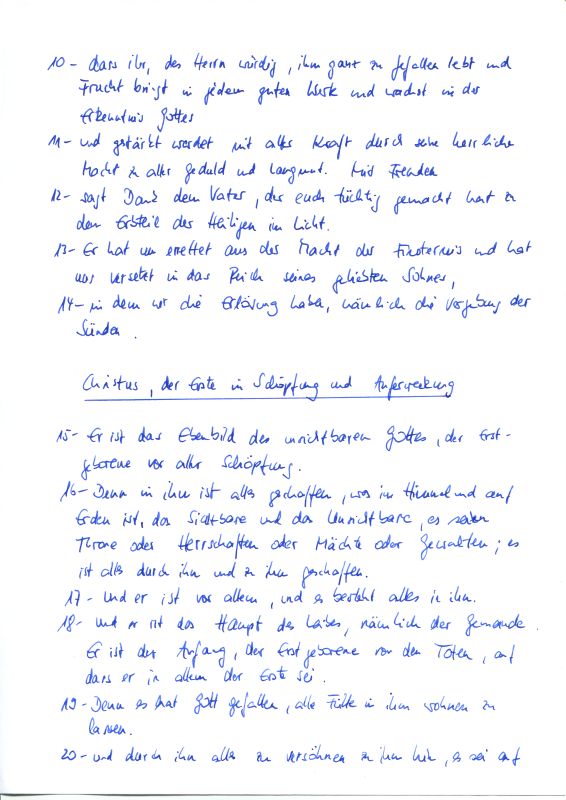 10 - dass ihr, des Herrn würdig, ihm ganz zu gefallen lebt und
Frucht bringt in jedem guten Werk und wachst in der
Erkenntnis Gottes
11 - und gestärkt werdet mit aller Kraft durch seine herrliche
Macht zu aller Geduld und Langmut. Mit Freuden
12 - sagt Dank dem Vater, der euch tüchtig gemacht hat zu
dem Erbteil der Heiligen im Licht.
13 - Er hat uns errettet aus der Macht der Finsternis und hat
uns versetzt in das Reich seines geliebten Sohnes,
14 - in dem wir die Erlösung haben, nämlich die Vergebung der
Sünden.
Christus, der Erste in Schöpfung und Auferweckung
15 - Er ist das Ebenbild des unsichtbaren Gottes, der Erst-
geborene vor aller Schöpfung.
16 - Denn in ihm ist alles geschaffen, was im Himmel und auf
Erden ist, das Sichtbare und das Unsichtbare, es seien
Throne oder Herrschaften oder Mächte oder Gewalten; es
ist alles durch ihn und zu ihm geschaffen.
17 - Und er ist vor allem, und es besteht alles in ihm.
18 - Und er ist das Haupt des Leibes, nämlich der Gemeinde.
Er ist der Anfang, der Erstgeborene von den Toten, auf
dass er in allem der Erste sei.
19 - Denn es hat Gott gefallen, alle Fülle in ihm wohnen zu
lassen.
20 - und durch ihn alles zu versöhnen zu ihm hin, es sei auf